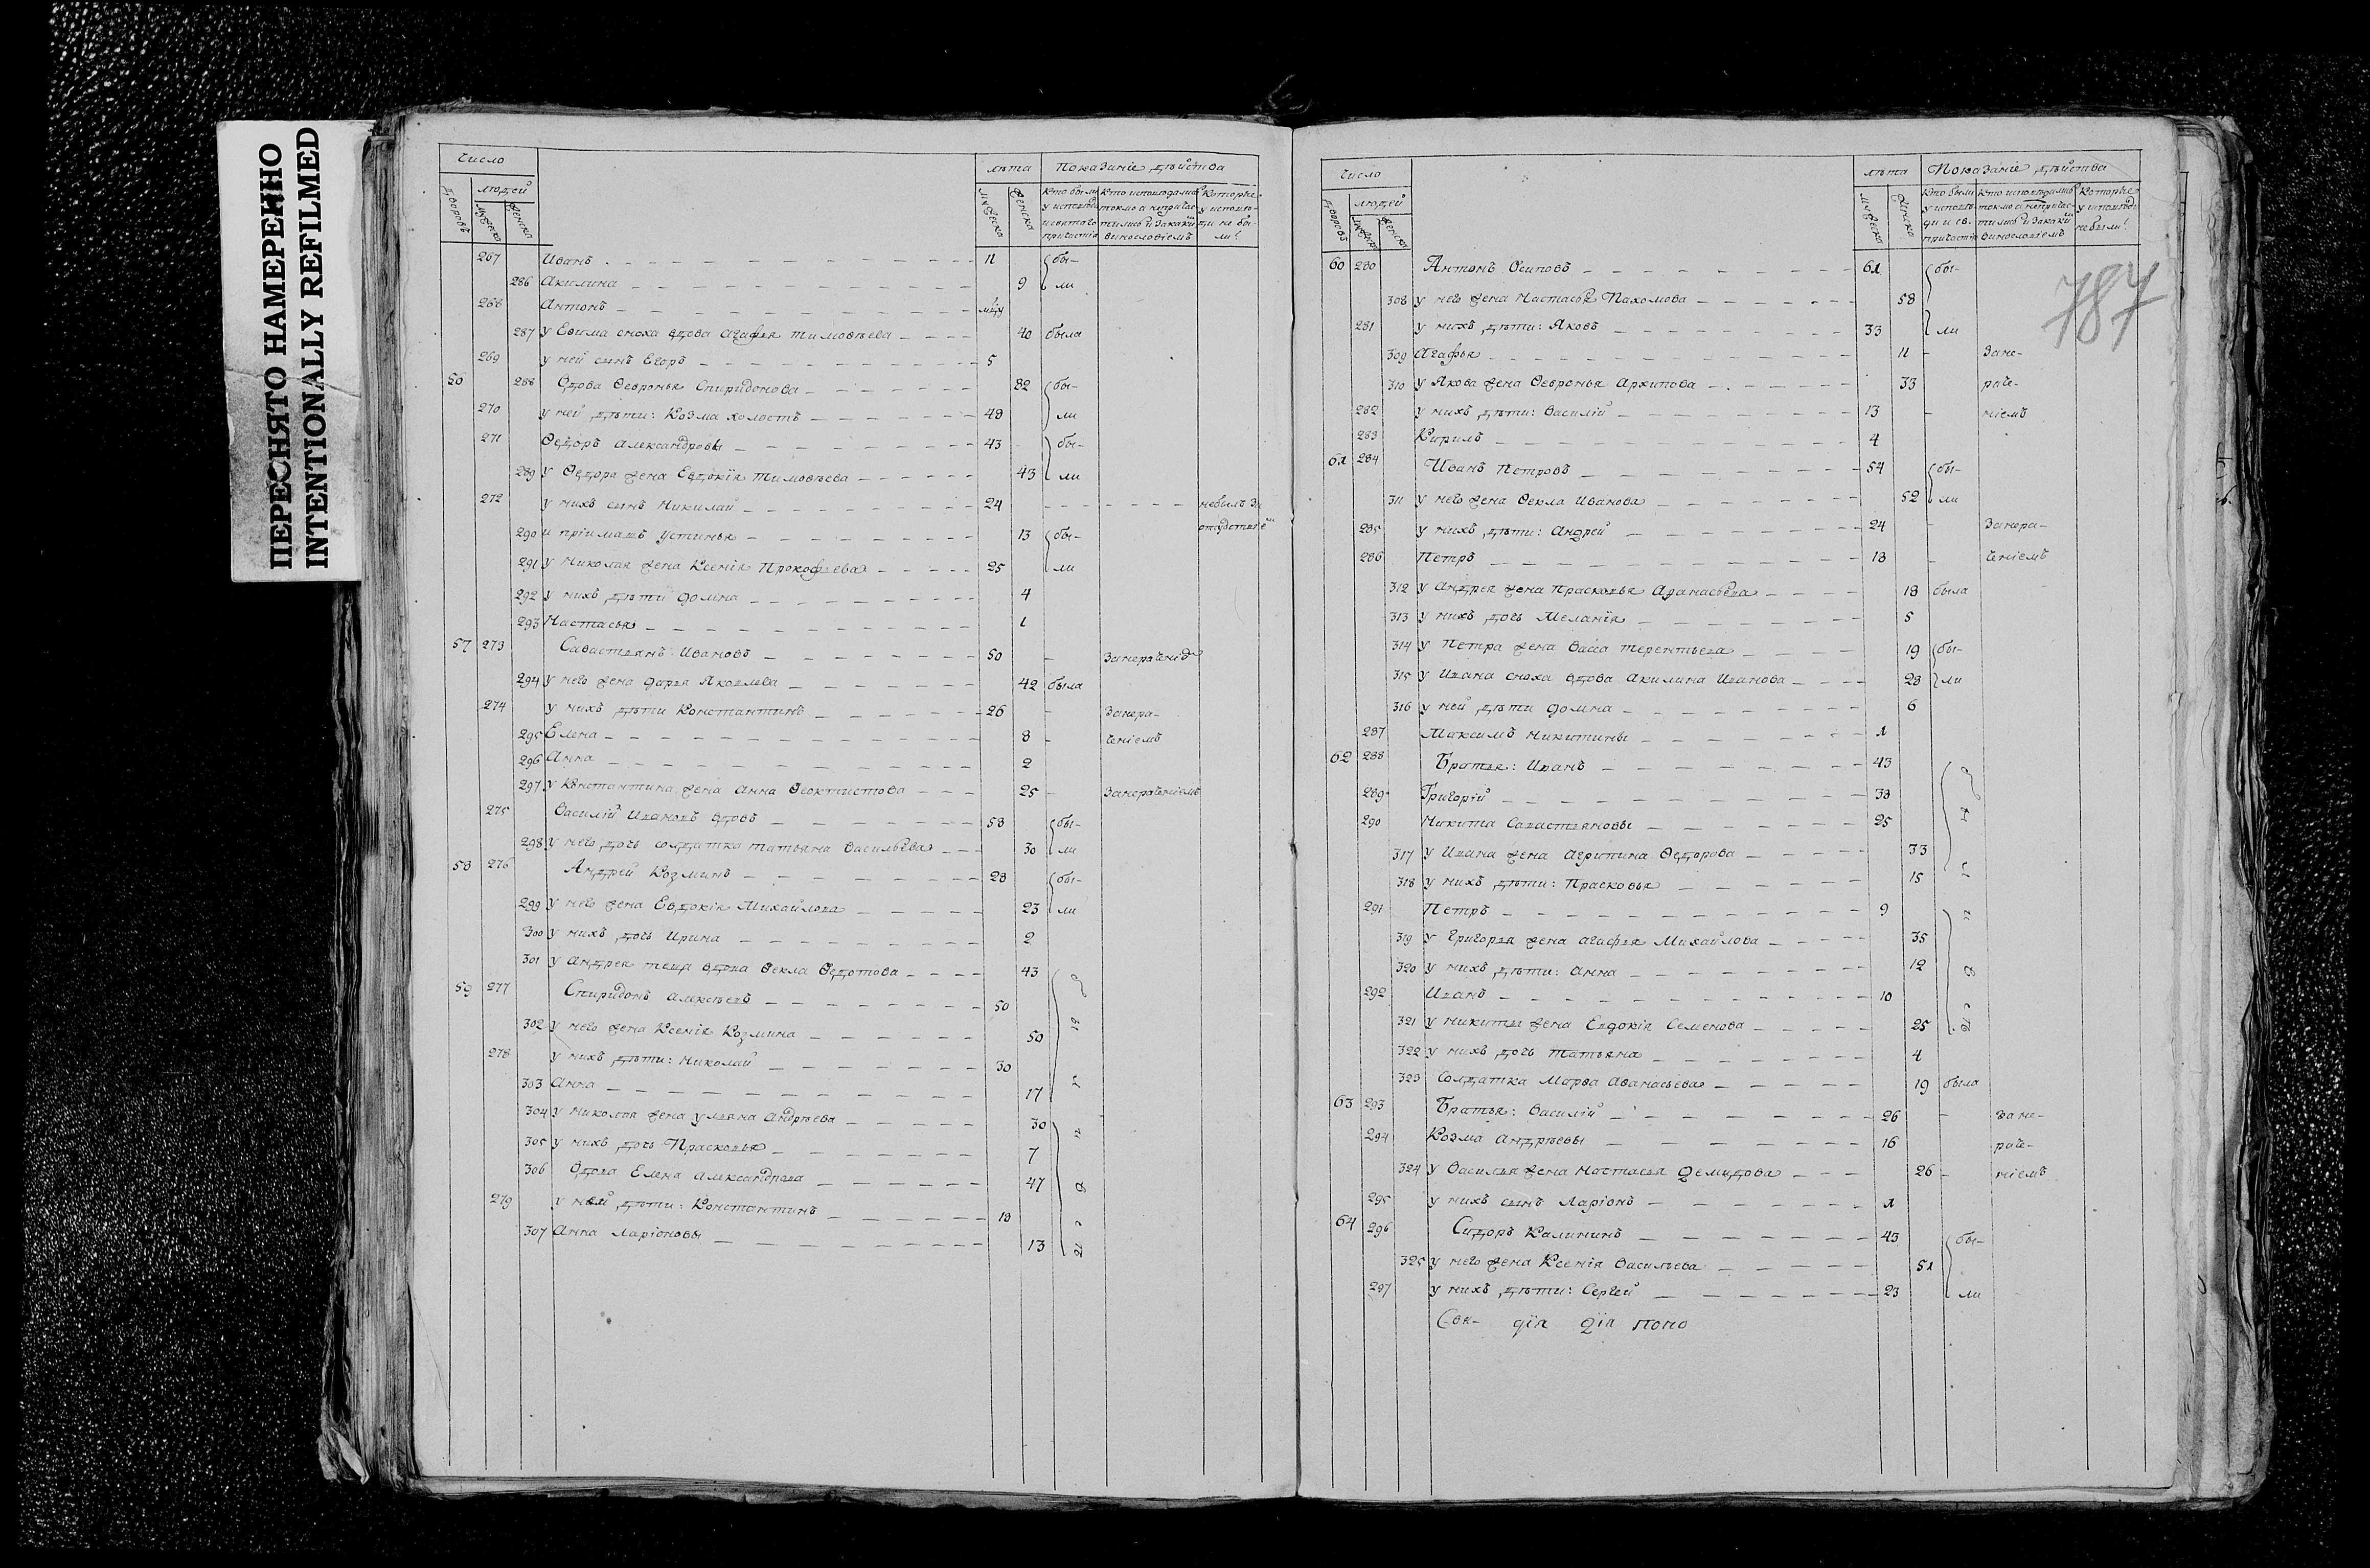 ПЕРЕСНЯТО НАМЕРЕННО
INTENTIONALLY REFILMED
Число лѣта Показаніе дѣйства
людей
дворовъ мужеска женска мужеска женска
267 Иванъ 11 бы-
286 Акилина 9 ли
268 Антонъ
287 у Евима сноха вдова Агафья Тимовѣева 40 была
269 у ней сынъ Егоръ 5
56 288 Вдова Февронья Спиридонова 82 бы-
270 у ней дѣти: Козма холостъ 48 ли
271 Ѳедоръ Александровы 43 бы-
289 у Ѳедора жена Евдокія Тимовѣева 43 ли
272 у нихъ сынъ Николай 24 небылъ за отлуч
290 и пріимашъ Устинья 13 бы-
291 у Николая жена Ксенія Прокофьева 25 ли
292 у нихъ дѣти Домна 4
293 Настасья 1
57 273 Савастьянъ Ивановъ 50 Занераченіе
294 у него жена Дарья Яковлева 42 была
274 у нихъ дѣти Константинъ 26 Занера-
295 Елена 8 ченіемъ
296 Анна 2
297 у Константина жена Анна Ѳеоктистова 25 Занераченіемъ
275 Василій Ивановъ вдовъ 58 бы-
298 у него дочь солдатка Татьяна Васильева 30 ли
58 276 Андрей Козминъ 28 бы-
299 у него жена Евдокія Михайлова 23 ли
300 у нихъ дочь Ирина 2
301 у Андрея теща вдова Ѳекла Ѳедотова 43
59 277 Спиридонъ Алексѣевъ 50
302 у него жена Ксенія Козмина 50
278 у нихъ дѣти: Николай 30
303 Анна 17
304 у Николая жена Ульяна Андрѣева 30
305 у нихъ дочь Прасковья 7
306 Вдова Елена Александрова 47
279 у ней дѣти: Константинъ 18
307 Анна Ларіоновы 13
787
Число лѣта Показаніе дѣйства
людей
дворовъ мужеска женска мужеска женска
60 280 Антонъ Осиповъ 61 бы-
308 у него жена Настасья Пахомова 58
281 у нихъ дѣти: Яковъ 33 ли
309 Агафья 11 Зане-
310 у Якова жена Февронья Архипова 33 раче-
282 у нихъ дѣти: Василій 13 ніемъ
283 Кирилъ 4
61 284 Иванъ Петровъ 54 бы-
311 у него жена Ѳекла Иванова 52 ли
285 у нихъ дѣти: Андрей 24 Занера-
286 Петръ 18 ченіемъ
312 у Андрея жена Прасковья Аѳанасьева 18 была
313 у нихъ дочь Меланія 5
314 у Петра жена Васса Терентьева 19 бы-
315 у Ивана сноха вдова Акилина Иванова 28 ли
316 у ней дѣти Домна 6
287 Максимъ Никитины 1
62 288 Братья: Иванъ 43
289 Григорій 38
290 Никита Савастьяновы 25
317 у Ивана жена Агрипина Ѳедорова 33
318 у нихъ дѣти: Прасковья 15
291 Петръ 9
319 у Григорья жена Агафья Михайлова 35
320 у нихъ дѣти: Анна 12
292 Иванъ 10
321 у Никиты жена Евдокія Семенова 25
322 у нихъ дочь Татьяна 4
323 Солдатка Марѳа Аѳанасьева 19 была
63 293 Братья: Василій 26 зане-
294 Козма Андрѣевы 16 раче-
324 у Василья жена Настасья Демидова 26 ніемъ
295 у нихъ сынъ Ларіонъ 1
64 296 Сидоръ Калининъ 43 бы-
325 у него жена Ксенія Васильева 51
297 у нихъ дѣти: Сергей 23 ли